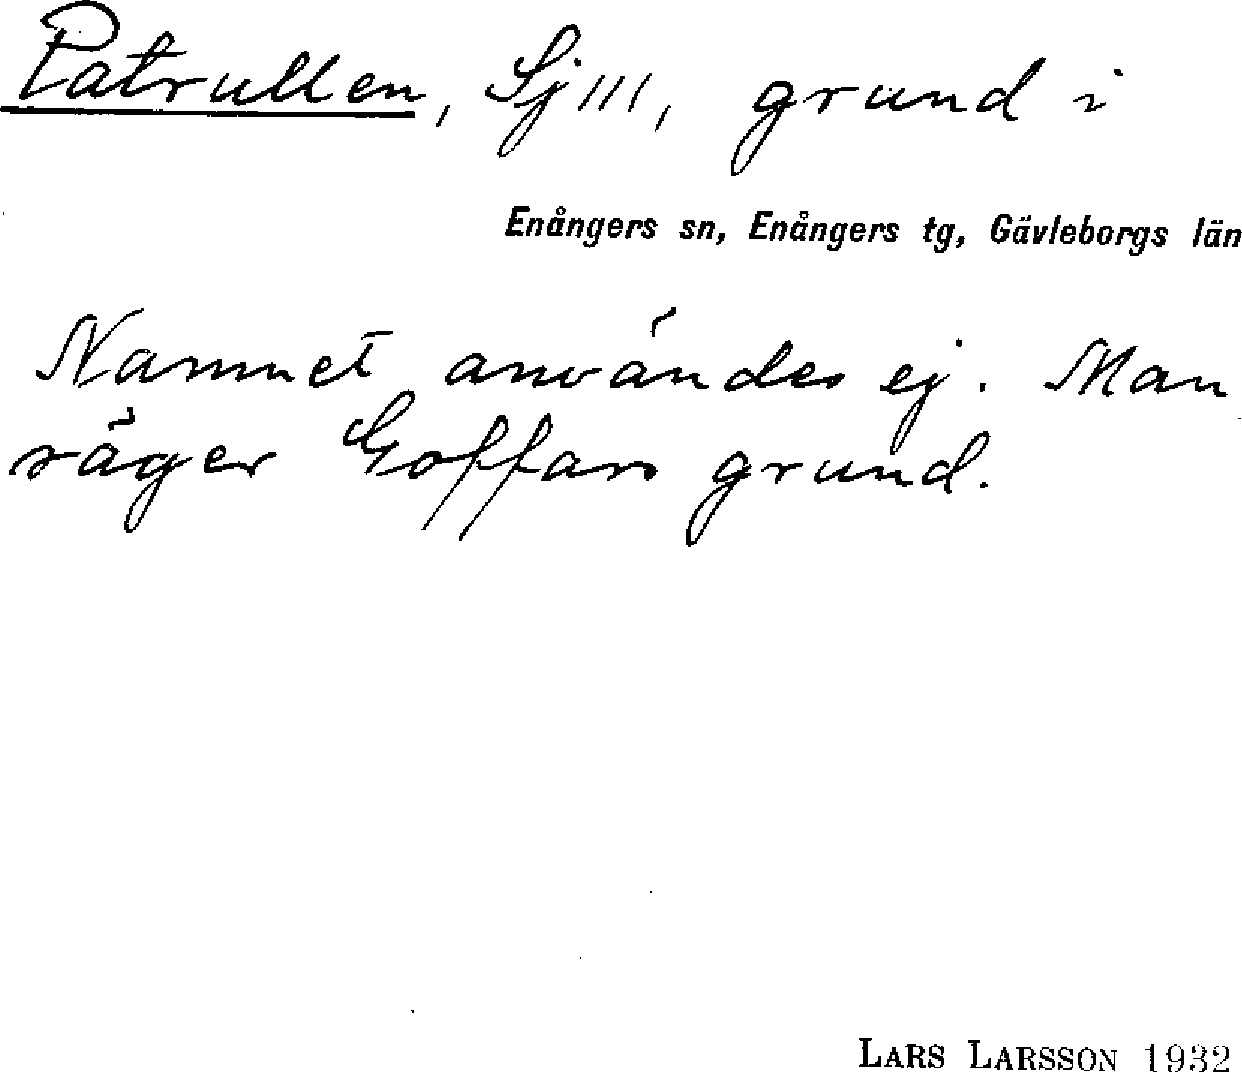 Patrullen, Sj 111, grund i
Enångers sn, Enångers tg, Gävleborgs län
Namnet användes ej. Man
säger Goffars grund.
LARS LARSSON 1932